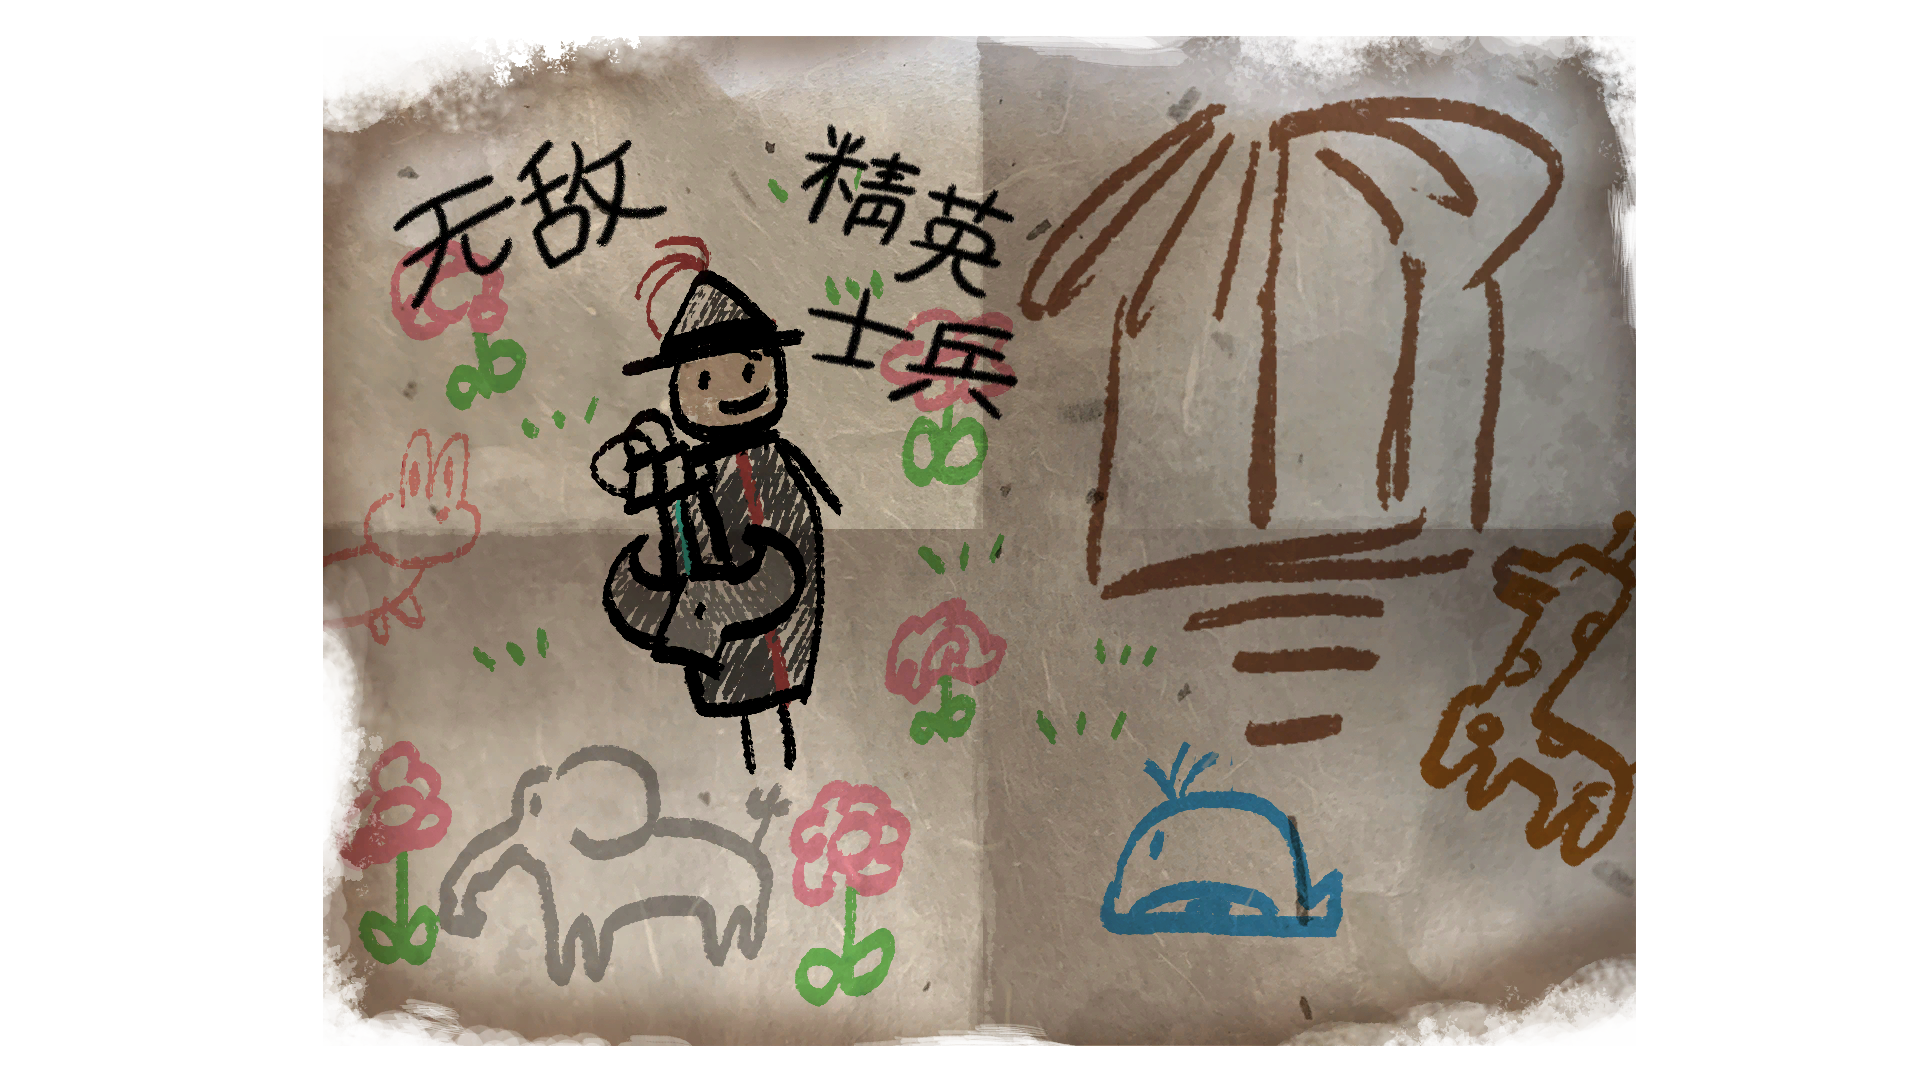 无敌
精英
士兵